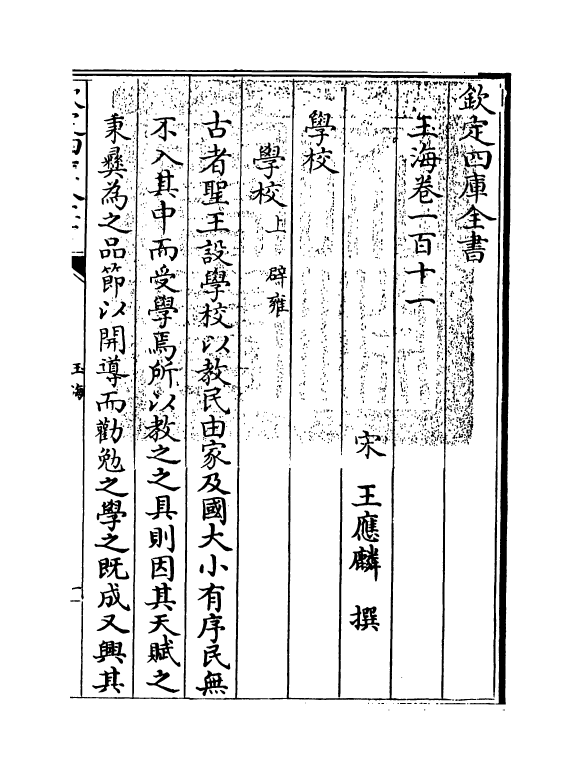 欽定四庫全書
玉海卷一百十一
宋 王應麟 撰
學校
學校上 辟雍
古者聖王設學校以教民由家及國大小有序民無
不入其中而受學焉所以教之之具則因其天賦之
秉彝為之品節以開導而勸勉之學之既成又興其
玉海